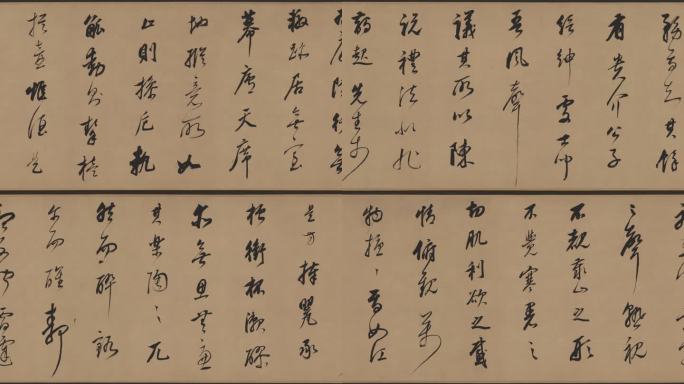 務焉知其餘
有貴介公子
搢紳處士聞
吾風聲
議其所以陳
說禮法是非
鋒起先生於
為庭衢行無
轍跡居無室
幕廬天席
地縱意所如
止則操卮執
觚動則挈榼
提壺惟酒是
之聲熟視
不覩泰山之形
不覺寒暑之
切肌利欲之感
情俯觀萬
物擾擾焉如江
是方捧罌承
槽銜杯漱醪
無思無慮
其樂陶陶兀
然而醉豁
尔而醒靜
聽不聞雷霆